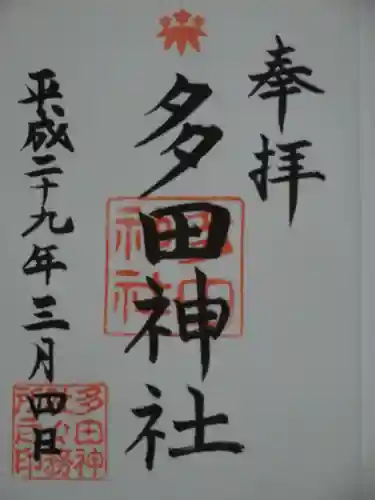 奉拝
多田神社
平成二十九年三月四日
多田神社
多田神
社社務
所之印